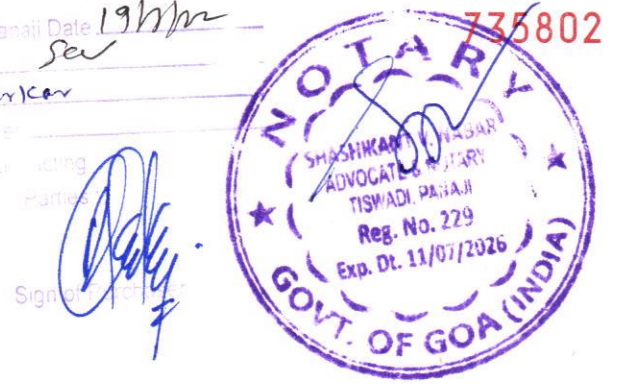 Panaji Date
735802
Parties
Sign of Purchaser
NOTARY
SHASHIKANT V. NABAR
ADVOCATE & NOTARY
TISWADI, PANAJI
Reg. No. 229
Exp. Dt. 11/07/2026
GOVT. OF GOA (INDIA)